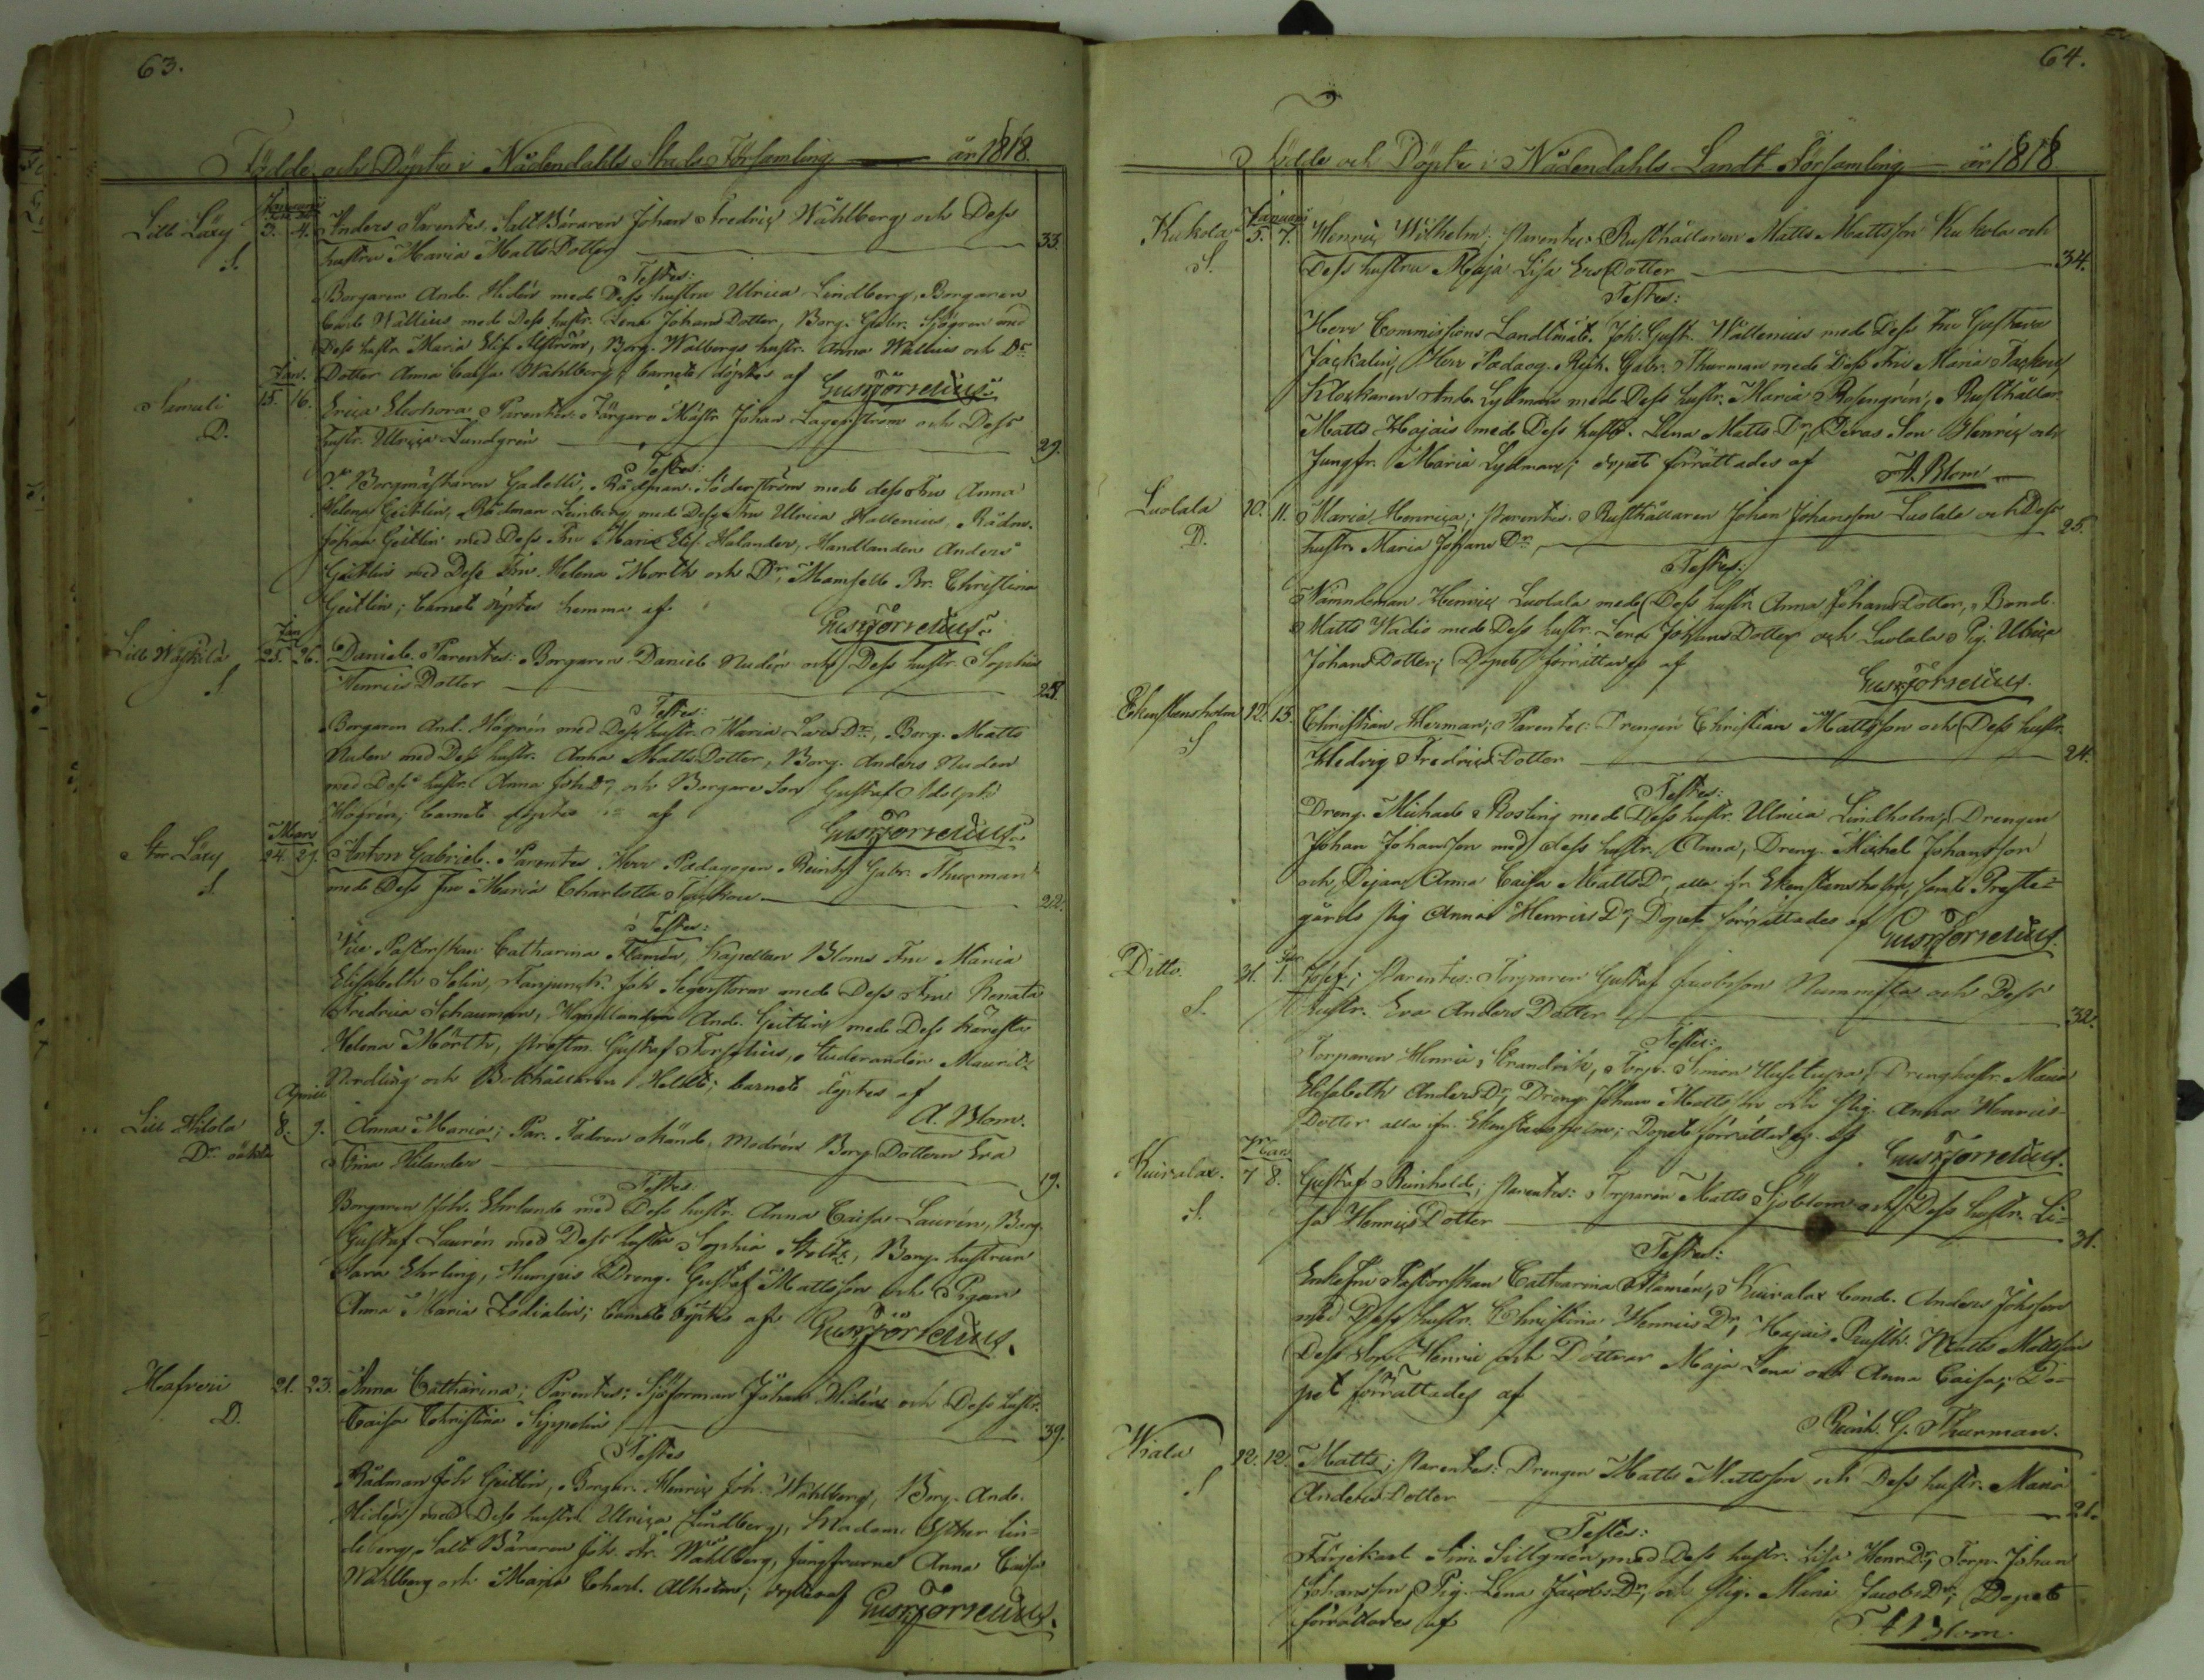 63.
Födde och Döpte i Nådendahls Stads Församling år 1818.
Januari
Lill Läxy 3. 4. Anders. Parentes, Salt Bäraren Johan Fredric Wåhlberg och Dess
S. hustru Maria Matts Dotter 33.
Testes:
Borgaren And. Hidén med Dess hustru Ulrica Lindberg, Borgaren
Wallius med Dess hustr. Lena Johans Dotter, Borg. Gabr. Sjögren med
Dess hustr. Maria Elis. Alström, Borg. Walbergs hustr. Anna Wallius och Dr
Jan. Dotter Anna Caisa Wahlberg; barnet döptes af Gust. Forselius.
Samuli 15. 16. Erica Eleonora Parentes: Färgare Mäster Johan Lagerström och Dess
D. hustr. Ulrica Lundgrén 29.
Testes:
Borgmästaren Gadolli, Rådman Söderström med dess Fru Anna
Helena Geitlin, Rådman Leinberg med Dess Fru Ulrica Wallenius, Rådm.
Johan Geitlin med Dess Fru Maria Elis. Helander, Handlanden Anders
Geitlin med Dess Fru Helena Morth och Dr, Mamsell Br. Christina
Geitlin; barnet döptes hemma af Gust. Forselius.
Jan
Lill Wäskilä 25. 26. Daniel. Parentes: Borgaren Daniel Nudén och Dess hustr. Sophia
S Henrics Dotter 28.
Testes:
Borgaren And. Högrén med Dess hustr. Maria Lars Dr, Borg. Matts
Nuden med Dess hustr. Anna Matts Dotter, Borg. Anders Nuden
med Dess hustr. Anna Joh. Dr, och Borgare Son Gustaf Adolph
Högrén; barnet döptes af Gust. Forselius.
Mars
Stor Läxy 24. 29. Anton Gabriel. Parentes Herr Pædagogen Reinh. Gabr. Thurman
S. med Dess Fru Maria Charlotta 22.
Testes:
Vice Pastorskan Catharina Flamén, Kapellan Bloms Fru Maria
Elisabeth Solin, Fanjunk. Joh. Segerstorm med Dess Fru Renata
Fredrica Schauman, Handlanden And. Geitlin med Dess Käresta
Helena Mörth, Prostm. Gustaf Forselius, Studeranden Maurit
Nordling och Bokhållaren Holst; barnet döptes af
April A. Blom.
Lill Hilola 8. 9. Anna Maria; Par. Fadren okänd, modren Borg. Dottern Eva
Dr oäkta Stina Helander 19.
Testes:
Borgaren Joh. Ehrlund med Dess hustr. Anna Caisa Laurén, Borg.
Gustaf Laurén med Dess hustru Sophia Stoltz, Borg. hustrun
Sara Ehrling, Humpis Dreng. Gustaf Mattsson och Pigan
Anna Maria Zodialin; barnet döptes af Gust. Forselius.
Hafveri 21. 23. Anna Catharina; Parentes: Sjöforman Johan Hidén och Dess hustr.
D. Caisa Christina Sippelin 39.
Testes
Rådman Joh Geitlin, Borgar. Henric Joh. Wåhlberg, Borg. And.
Hidén med Dess hustru Ulrica Lindberg, Madame Esther Lin-
deberg, Salt Bäraren Joh. Fr. Wåhlberg, Jungfrurne Anna Caisa
Wåhlberg och Maja Charl. Alholm; döptes af Gust. Forselius.
64.
Födde och Döpte i Nådendahls Landt Församling år 1818
Januari
Kukola 5. 7. Henric Wilhelm; Parentes: Rusthållaren Matts Mattsson Kukola och
S. Dess hustru Maja Lisa Ers Dotter 34.
Testes:
Herr Commissions Landtmät. Joh. Gust. Wallenius med Dess Fru Gustava
Jackalin, Herr Pædagog. Reinh. Gabr. Thurman med Dess Fru Maria
Klockaren And. Lydman med Dess hustr. Maria Rosengrén, Rusthållar.
Matts Hajais med Dess hustr. Lena Matts Dr, Deras Son Henric och
Jungfr. Maria Lydman; döpet förrättades af A. Blom
Luolala 10. 11. Maria Henrica; Parentes: Rusthållaren Johan Johansson Luolala och Dess
D. hustr. Maria Johans Dr 25.
Testes:
Nämndeman Henric Luolala med Dess hustr. Anna Johans Dotter, Bond.
Matts Wadis med Dess hustr. Lena Johans Dotter och Luolala Pig. Ulrica
Johans Dotter; Döpet förrättades af Gust. Forselius.
Ekenstensholm 12. 13. Christian Herman; Parentes: Drengen Christian Mattsson och Dess hustr.
S Hedvig Fredrics Dotter 24.
Testes:
Dreng. Michael Rosling med Dess hustr. Ulrica Lindholm, Drengen
Johan Johansson med dess hustr. Anna, Dreng. Michel Johansson
och Pigan Anna Caisa Matts Dr, alla ifr. Ekenstensholm, samt Preste-
gårds Pig Anna Henrics Dr, Döpet förrättades af Gust. Forselius.
Ditto. 31. 1. Josef; Parentes: Torparen Gustaf Jacobsson Nummista och Dess
S. hustr. Eva Anders Dotter 32.
Testes:
Torparen Henric Strandvik, Torp. Simon Uusitupa, Drenghustr. Maria
Elisabeth Anders Dr, Dreng Johan Mattsson och Pig. Anna Henrics
Dotter alla ifr. Ekenstensholm; Döpet förrättades af Gust. Forselius.
Mars
Kuivalax. 7 8. Gustaf Reinhold; Parentes: Torparen Matts Sjöblom och Dess hustr. Li-
S. sa Henrics Dotter 31.
Testes:
Enkefru Pastorskan Catharina Flamén, Kuivalax bond. Anders Johsson
med Dess hustr. Christina Henrics Dr, Hajais Rusth. Matts Mattsson
Dess Son Henric och Döttrar Maja Lena och Anna Caisa; Dö-
pet förrättades af
Reinh. G. Thurman.
Wiala 12. 12. Matts; Parentes: Drengen Matts Mattsson och Dess hustr. Maria
S Anders Dotter 21.
Testes:
Färjekarl Sim. Sillgrén med Dess hustr. Lisa Henr. Dr, Torp. Johan
Johansson, Pig. Lena Jacobs Dr, och Pig. Maria Jacobs Dr; Döpet
förrättades af A. Blom.